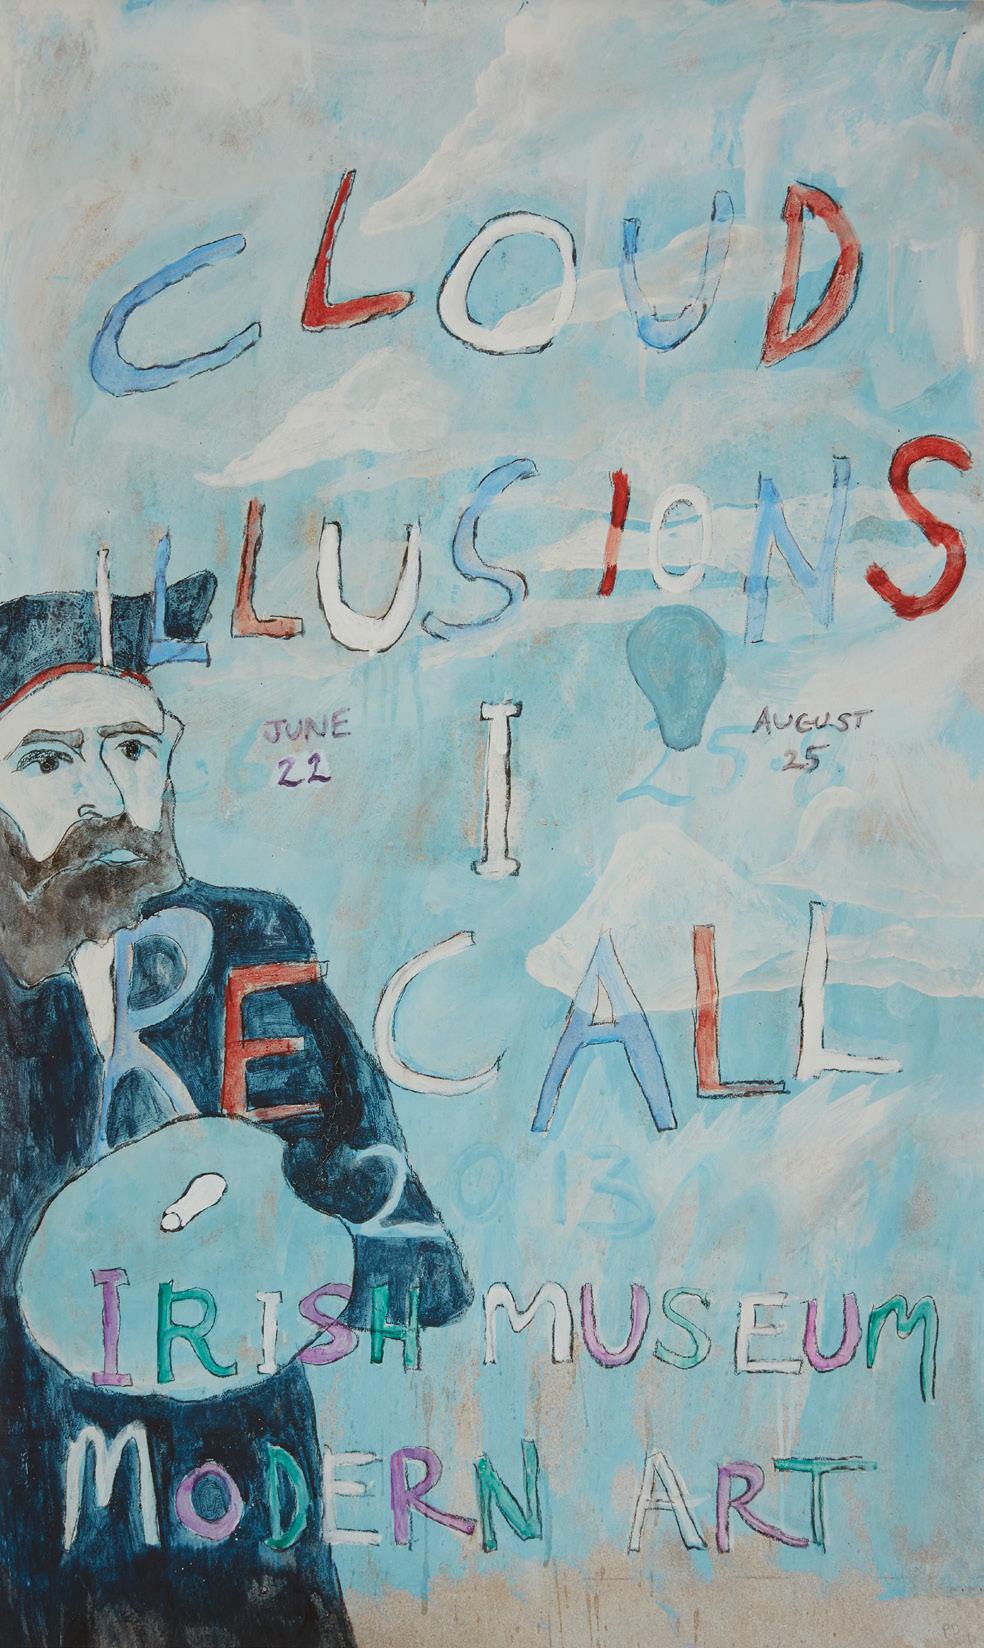 CLOUD
ILLUSIONS
JUNE
22
I
25
AUGUST
25
RECALL
2013
IRISH MUSEUM
MODERN ART
PD